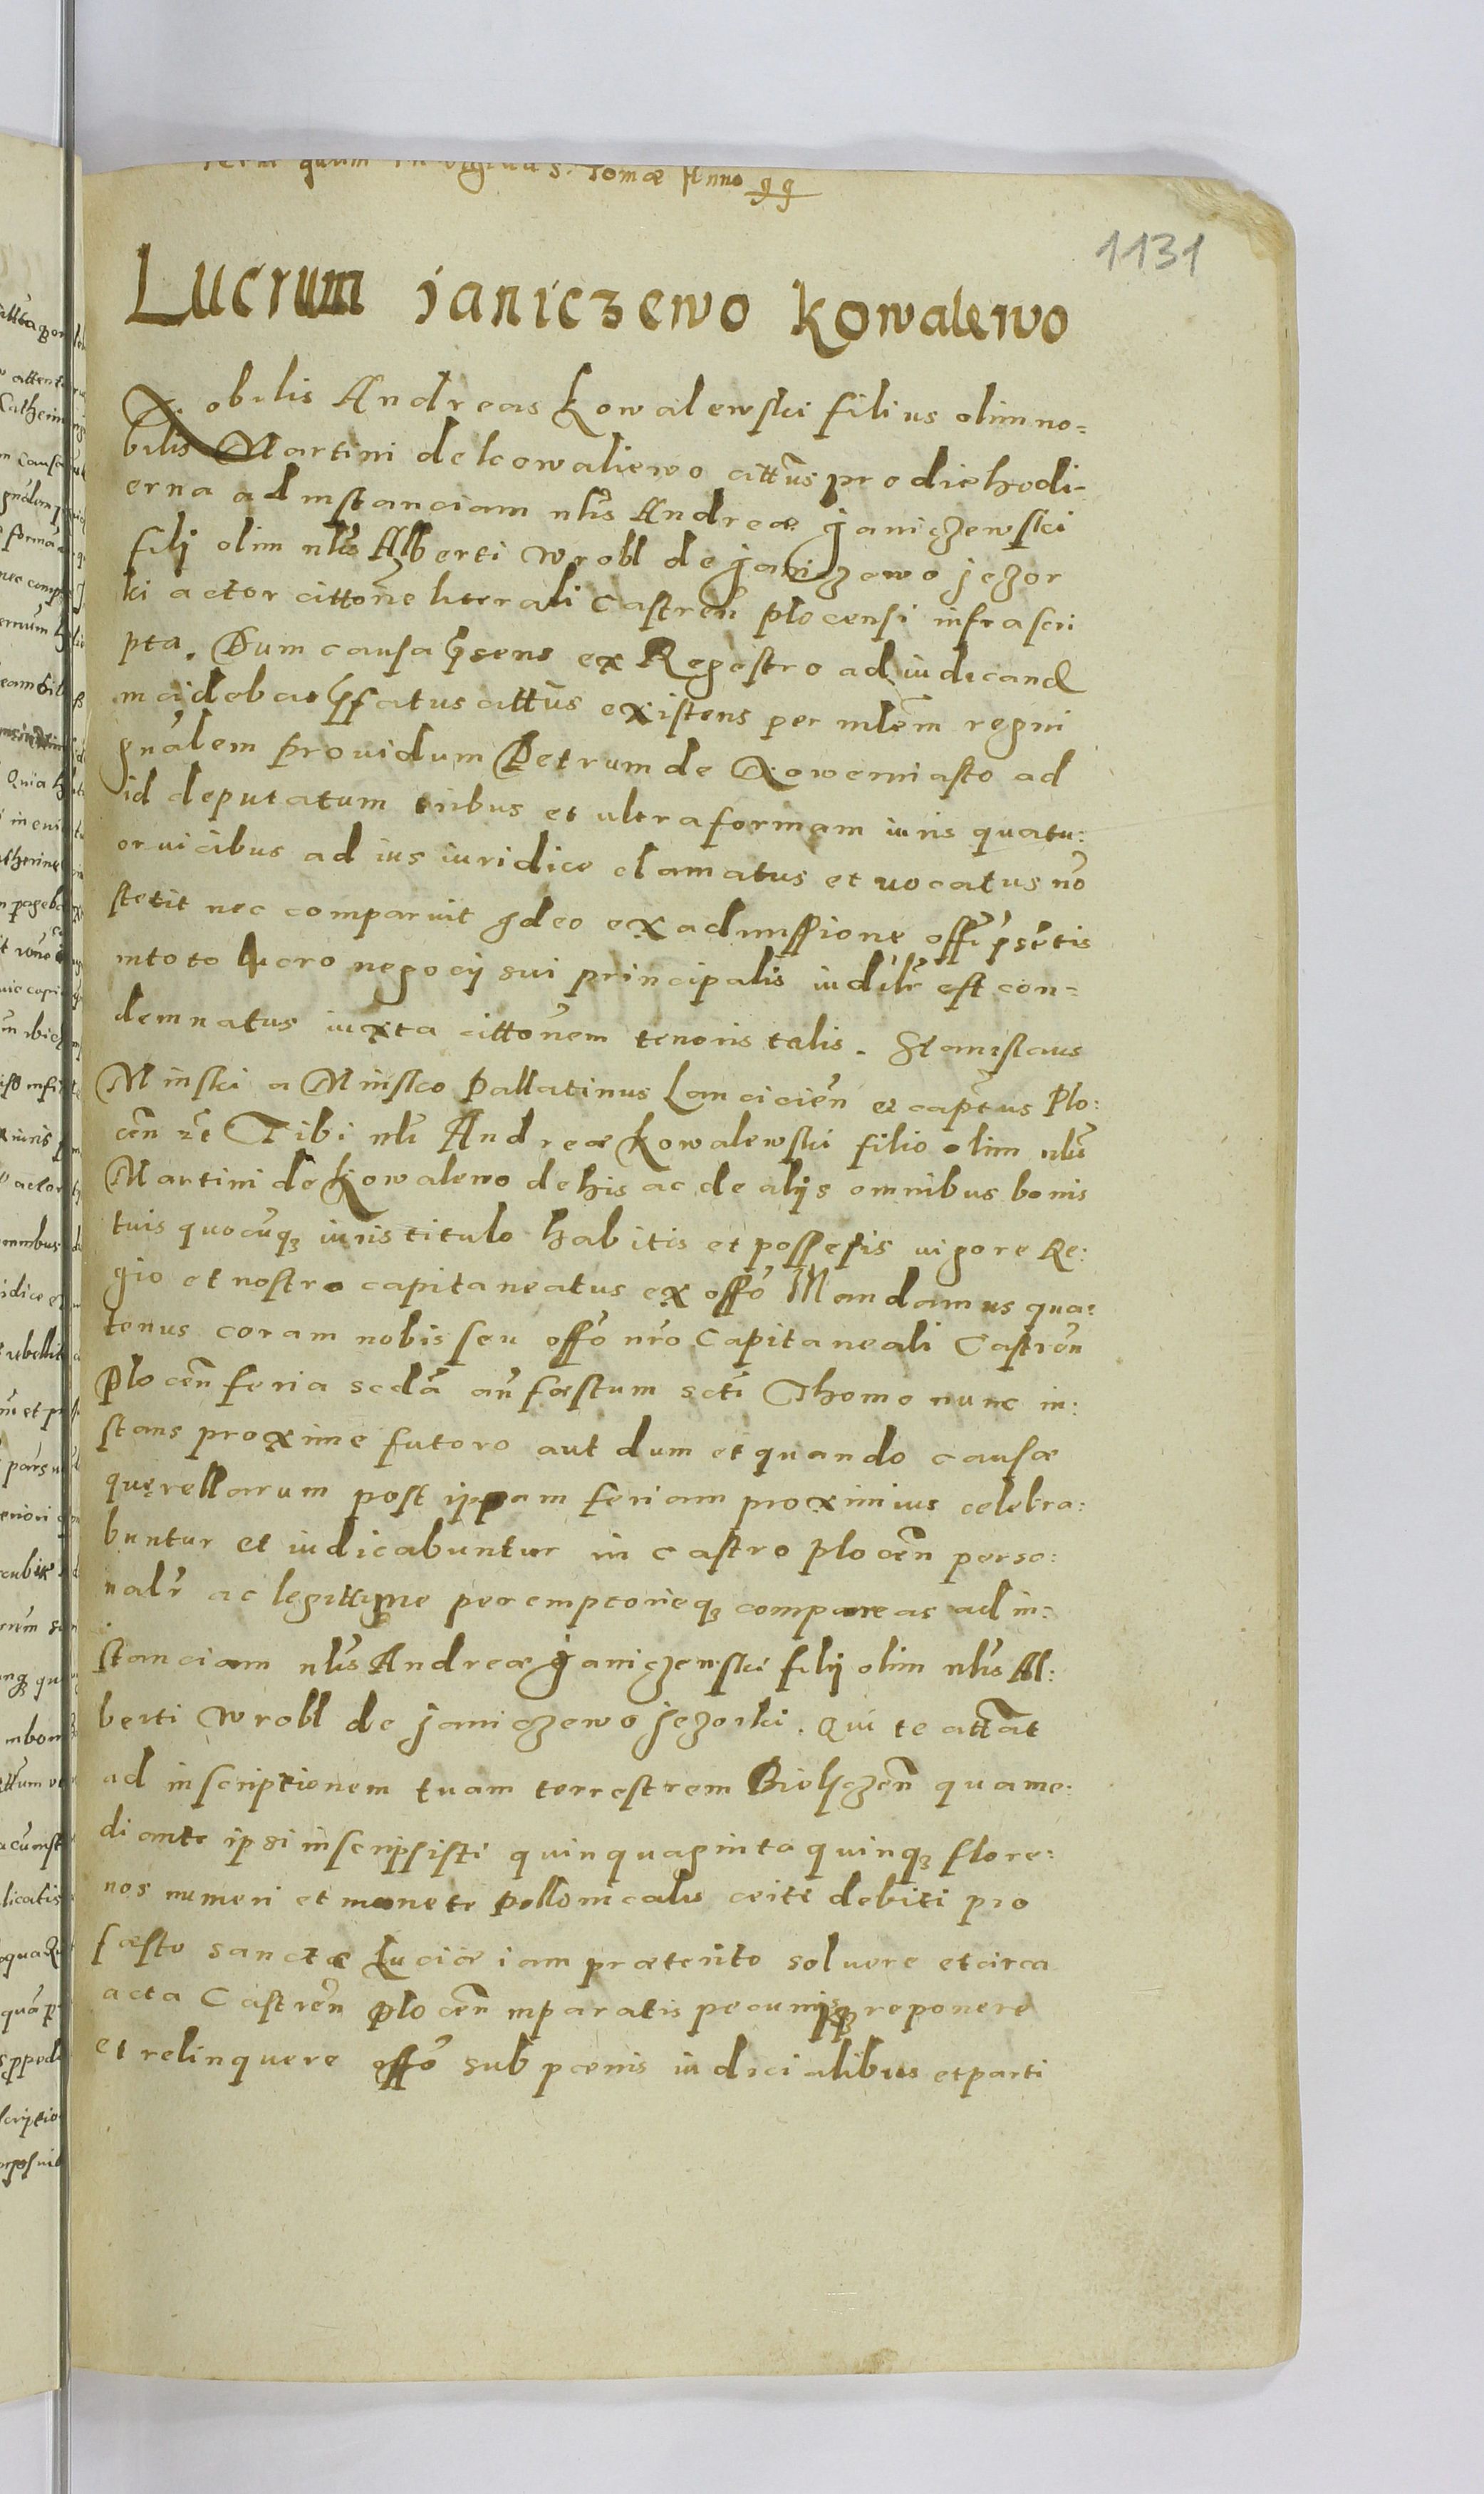 Tomæ Anno 99
1131
Lucrum janiczewo Kowalewo
Nobilis Andreas Kowalewski filius olim no=
bilis Martini de kowaliewo cittũs pro die hodi-
erna ad instanciam nłis Andreæ Janiczewski
filij olim nłis Alberti Wrobl de Janiczewo jezor
ki actor cittone literali Castreñ plocensi infrascri
pta. Dum causa p̃sens ex Regestro ad iudicand
incidebat p̃fatus cittus existens per mlem regni
gnãlem prouidum Petrum de Nowemiasto ad
id deputatum tribus et ultra formam iuris quatu:
or uicibus ad ius iuridice clamatus et uocatus nõ
stetit nec comparuit Ideo ex admissione offi p̃sẽtis
in toto lucro negocij sui principalis iudilr est con=
demnatus iuxta cittonem tenoris talis. Stanislaus
Minski a Minsko Pallatinus Lancicieñ et captus Plo:
ceñ zc Tibi nłi Andreæ Kowalewski filio olim nłis
Martini de Kowalewo de his ac de alijs omnibus bonis
tuis quocũq3 iuris titulo habitis et possessis uigore Re:
gio et nostro capitaneatus ex offo Mandamus qua:
tenus coram nobis seu offo nro Capitaneali Castreñ
Ploceñ feria scdã añ fæstum scti Thomo nunc in:
stans proxime futoro aut dum et quando causæ
quęrellarum post ippam feriam proximius celebra:
buntur et iudicabuntur in castro ploceñ perso:
nalr ac legittime peremptorieq3 compareas ad in:
stanciam nłis Andreæ Janiczewski filij olim nłis Al:
berti Wrobl de Janiczewo Jezorki. Qui te attãt
ad inscriptionem tuam terrestrem Bielsczeñ qua me:
diante ipsi inscripsisti quinquaginta quinq3 flore:
nos numeri et monete pollonicalis certi debiti pro
fæsto sanctæ Luciæ iam præterito soluere et circa
acta Castreñ Ploceñ inparatis pecunijsq3 reponere
et relinquere offo sub pœnis iudicialibus et parti